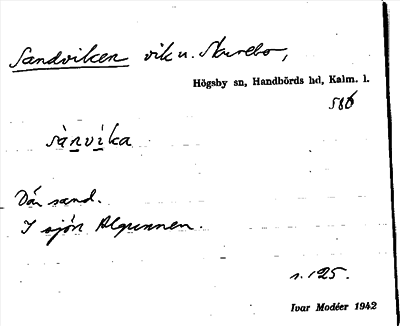 Sandviken vik u. Skurebo,
Högsby sn, Handbörds hd, Kalm. l.
586
sànvíka
Där sand.
I sjön Algunnen.
s. 125.
Ivar Modéer 1942